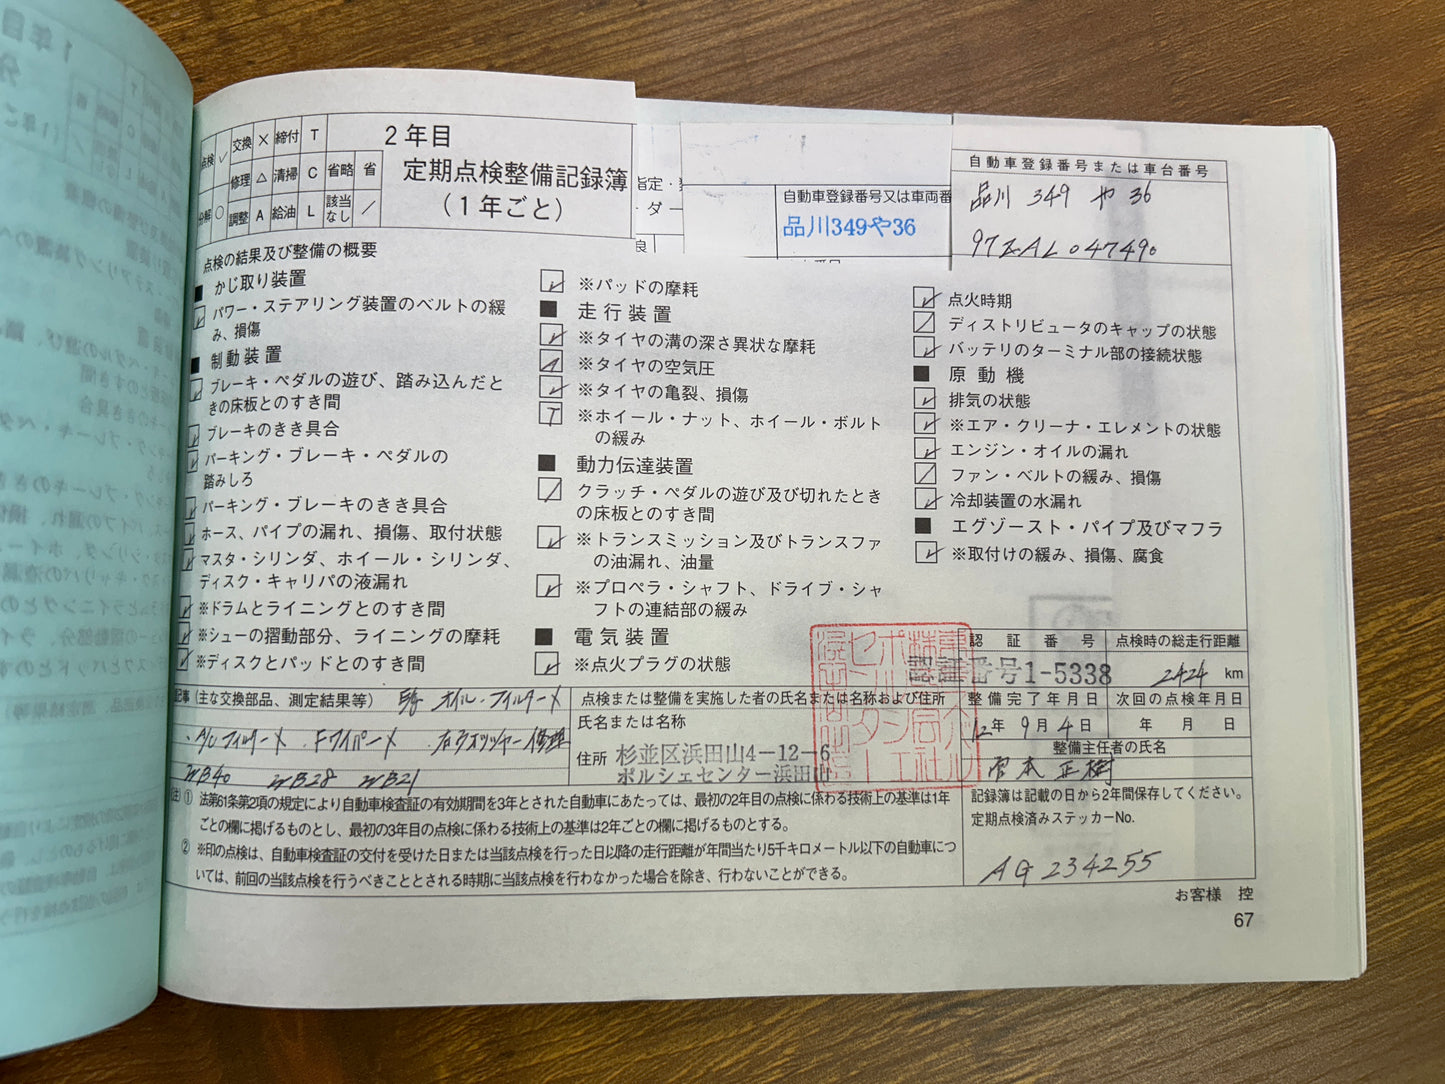 点検 ✓ 交換 × 締付 T
修理 △ 清掃 C 省略 省
分解 ○ 調整 A 給油 L 該当なし ／
2年目
定期点検整備記録簿
(1年ごと)
指定・
・ダー
自動車登録番号又は車両番
品川349や36
自動車登録番号または車台番号
品川 349 や 36
97ZAL047490
点検の結果及び整備の概要
■ かじ取り装置
パワー・ステアリング装置のベルトの緩
み、損傷
■ 制動装置
ブレーキ・ペダルの遊び、踏み込んだと
きの床板とのすき間
ブレーキのきき具合
パーキング・ブレーキ・ペダルの
踏みしろ
パーキング・ブレーキのきき具合
ホース、パイプの漏れ、損傷、取付状態
マスタ・シリンダ、ホイール・シリンダ、
ディスク・キャリパの液漏れ
※ドラムとライニングとのすき間
※シューの摺動部分、ライニングの摩耗
※ディスクとパッドとのすき間
※パッドの摩耗
■ 走行装置
※タイヤの溝の深さ異状な摩耗
※タイヤの空気圧
※タイヤの亀裂、損傷
T ※ホイール・ナット、ホイール・ボルト
の緩み
■ 動力伝達装置
クラッチ・ペダルの遊び及び切れたとき
の床板とのすき間
※トランスミッション及びトランスファ
の油漏れ、油量
※プロペラ・シャフト、ドライブ・シャ
フトの連結部の緩み
■ 電気装置
※点火プラグの状態
点火時期
ディストリビュータのキャップの状態
バッテリのターミナル部の接続状態
■ 原動機
排気の状態
※エア・クリーナ・エレメントの状態
エンジン・オイルの漏れ
ファン・ベルトの緩み、損傷
冷却装置の水漏れ
■ エグゾースト・パイプ及びマフラ
※取付けの緩み、損傷、腐食
認証番号
認証番号1-5338
点検時の総走行距離
2424 km
記事（主な交換部品、測定結果等） オイル・フィルター×
・A/Cフィルター× ・Fワイパー× ・右ウオッシャー修理
WB40 WB28 WB21
点検または整備を実施した者の氏名または名称および住所
氏名または名称
住所 杉並区浜田山4-12-6
ポルシェセンター浜田山
整備完了年月日
12年 9月 4日
次回の点検年月日
年 月 日
整備主任者の氏名
正樹
(注) ① 法第61条第2項の規定により自動車検査証の有効期間を3年とされた自動車にあたっては、最初の2年目の点検に係わる技術上の基準は1年
ごとの欄に掲げるものとし、最初の3年目の点検に係わる技術上の基準は2年ごとの欄に掲げるものとする。
② ※印の点検は、自動車検査証の交付を受けた日または当該点検を行った日以降の走行距離が年間当たり5千キロメートル以下の自動車につ
いては、前回の当該点検を行うべきこととされる時期に当該点検を行わなかった場合を除き、行わないことができる。
記録簿は記載の日から2年間保存してください。
定期点検済みステッカーNo.
AG 234255
お客様 控
67